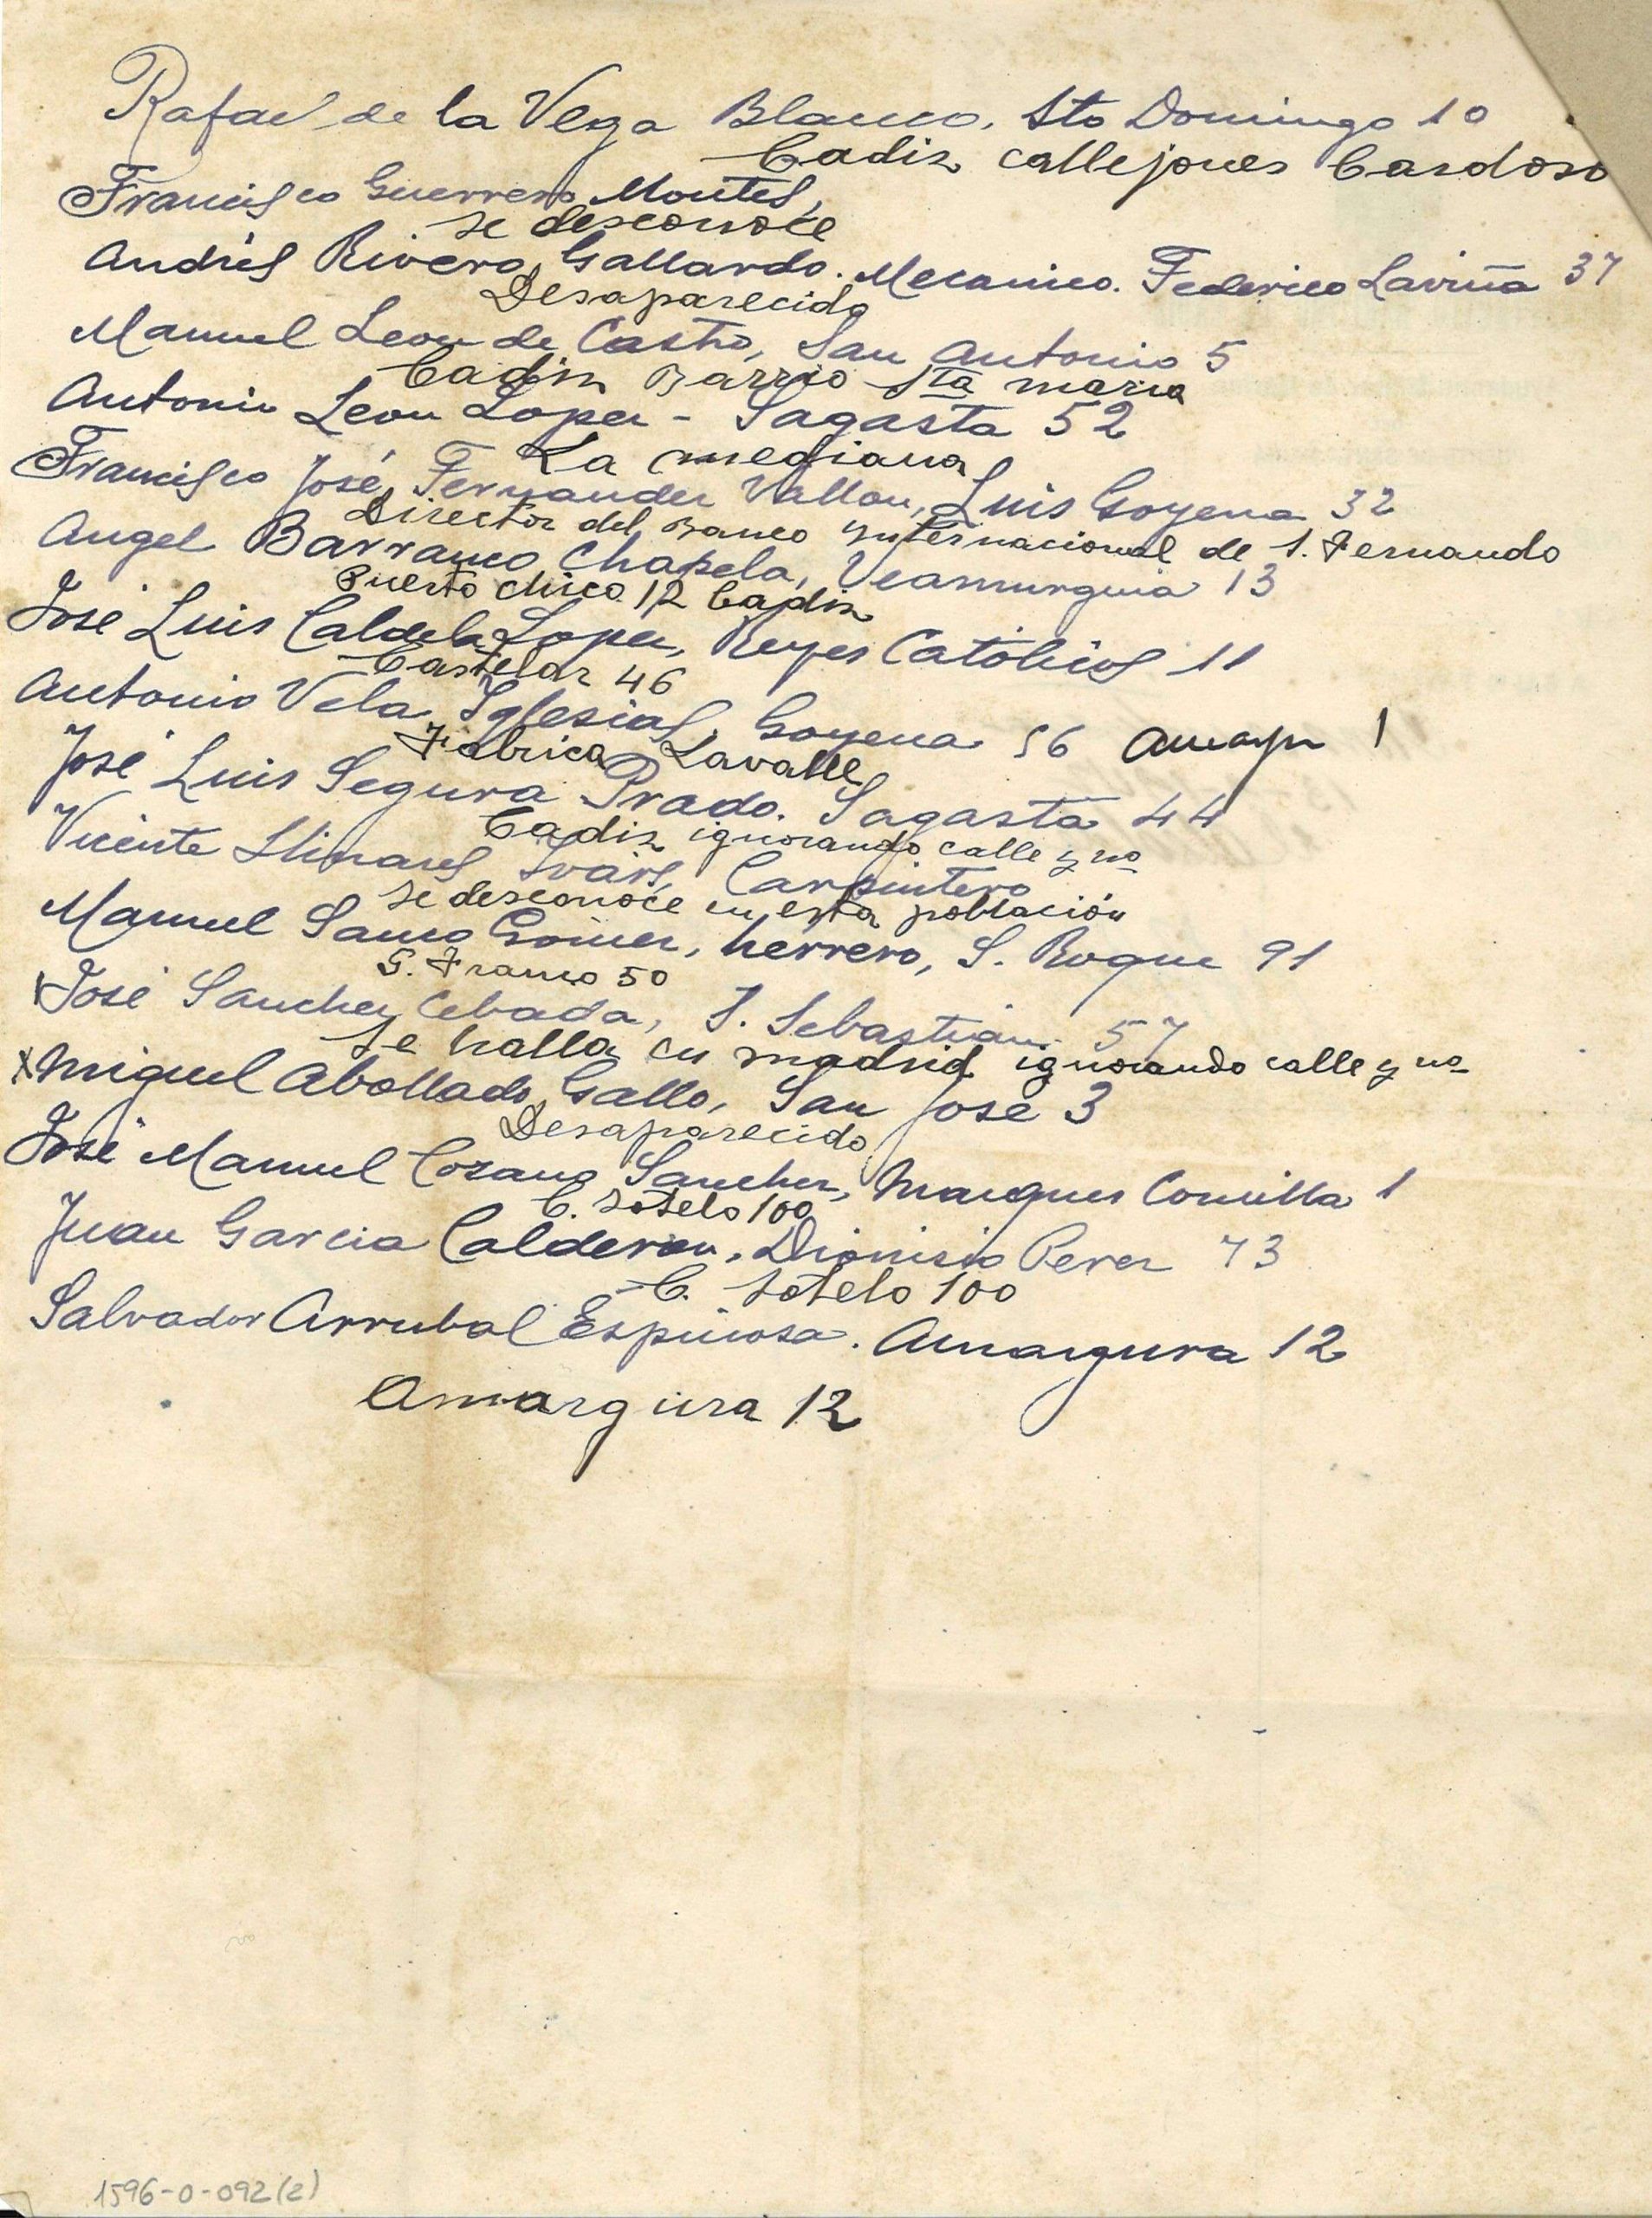 Rafael de la Vega Blanco. Sto Domingo 10
Cadiz callejones Cardoso
Francisco Guerrero Montes,
se desconoce
Andrés Rivero Gallardo. Mecanico. Federico Laviña 37
Desaparecido
Manuel Leon de Castro, San Antonio 5
Cadiz Barrio Sta maria
Antonio Leon Lopez - Sagasta 52
La mediana
Francisco José Fernandez Vallon, Luis Goyena 32
Director del Banco Internacional de S. Fernando
Angel Barranco Chapela, Veamurguia 13
Puerto chico 12 Cadiz
José Luis Caldela Lopez, Reyes Católicos 11
Castelar 46
Antonio Vela Iglesias, Goyena 56 1
Fabrica Lavalle
José Luis Segura Prado. Sagasta 44
Cadiz ignorando calle y no
Vicente Llinares Ivars, Carpintero
se desconoce en esta población
Manuel Gomez, herrero, S. Roque 91
G. Franco 50
José Sanchez Cebada, S. Sebastian 57
Se halla en madrid ignorando calle y no
x Miguel Abollado Gallo, San José 3
Desaparecido
José Manuel Lozano Sanchez, Marques Comilla 1
C. Sotelo 100
Juan Garcia Calderon, Dionisio Perez 73
C. Sotelo 100
Salvador Arrubal Espinosa. Amargura 12
Amargura 12
1596-0-092(2)